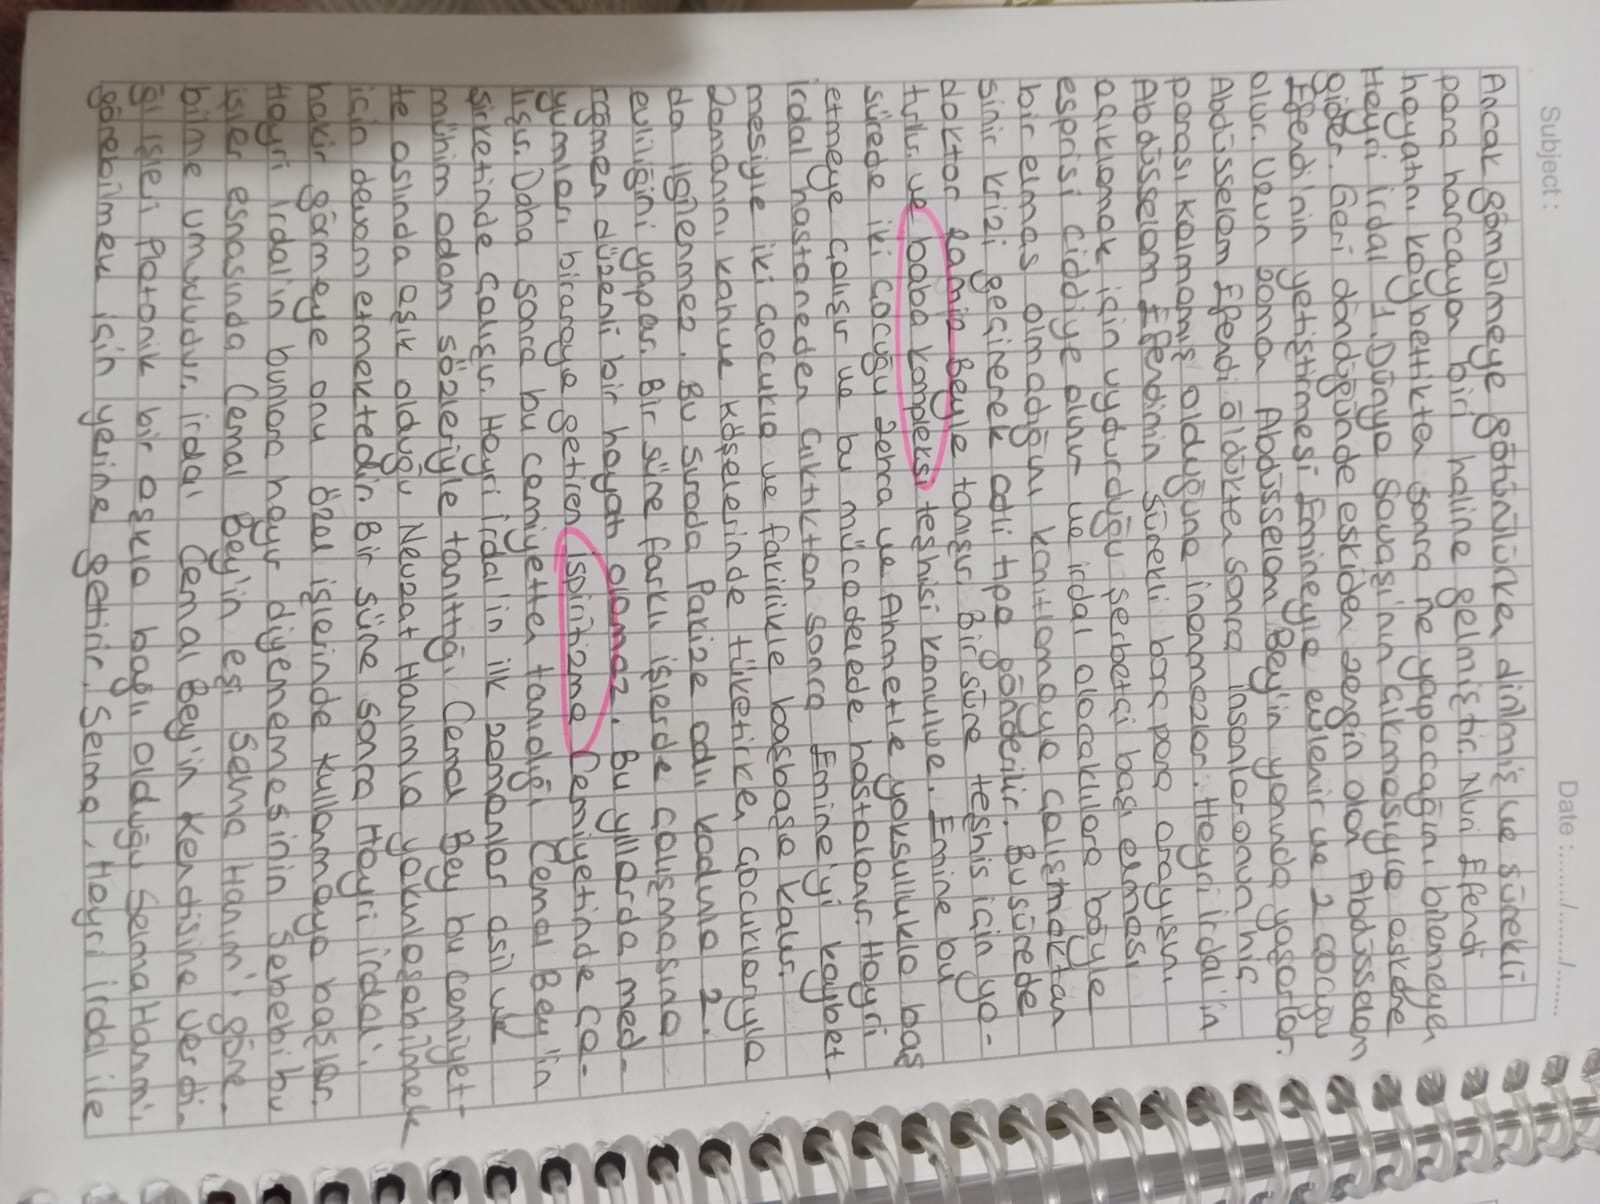 Subject :
Date :......./......./.......
Ancak gömülmeye götürülürken dirilmiş ve sürekli
para harcayan biri haline gelmiştir. Nuri Efendi
hayatını kaybettikten sonra ne yapacağını bilemeyen
Hayri İrdal 1. Dünya Savaşı'nın çıkmasıyla askere
gider. Geri döndüğünde eskiden zengin olan Abdüsselam
Efendi'nin yetiştirmesi Emineyle evlenir ve 2 çocuğu
olur. Uzun zaman Abdüsselam Bey'in yanında yaşarlar.
Abdüsselam Efendi öldükten sonra insanlar onun hiç
parası kalmamış olduğuna inanmazlar. Hayri İrdal'ın
Abdüsselam Efendinin sürekli borç para arayışını
açıklamak için uydurduğu şerbetçi başı elması
esprisi ciddiye alınır ve irdal alacaklılara böyle
bir elmas olmadığını kanıtlamaya çalışmaktan
sinir krizi geçirerek adli tıpa gönderilir. Bu sürede
doktor Ramiz Beyle tanışır. Bir süre teshis için ya-
tılır ve baba kompleksi teşhisi konulur. Emine bu
sürede iki çocuğu Zehra ve Ahmetle yoksullukla baş
etmeye çalışır ve bu mücadelede hastalanır. Hayri
irdal hastaneden çıktıktan sonra Emine'yi kaybet-
mesiyle iki çocukla ve fakirlikle başbaşa kalır.
Zamanını kahve köşelerinde tüketirken çocuklarıyla
da ilgilenmez. Bu sırada Pakize adlı kadınla 2.
evliliğini yapar. Bir süre farklı işlerde çalışmasına
rağmen düzenli bir hayatı olamaz. Bu yıllarda med-
yumları biraraya getiren İspiritizma Cemiyetinde ça-
lışır. Daha sonra bu cemiyetten tanıdığı Cemal Bey'in
şirketinde çalışır. Hayri İrdal'in ilk zamanlar asil ve
mühim adam sözleriyle tanıttığı Cemal Bey bu cemiyet-
te aslında aşık olduğu Nevzat Hanımla yakınlaşabilmek
için devam etmektedir. Bir süre sonra Hayri irdal'ı
hakir görmeye onu özel işlerinde kullanmaya başlar.
Hayri irdalın bunlara hayır diyememesinin sebebi bu
işler esnasında Cemal Bey'in eşi Selma Hanım'ı göre-
bilme umududur. irdal Cemal Bey'in kendisine verdi-
ği işleri Platonik bir aşkla bağlı olduğu Selma Hanımı
görebilmek için yerine getirir. Selma, Hayri irdal ile